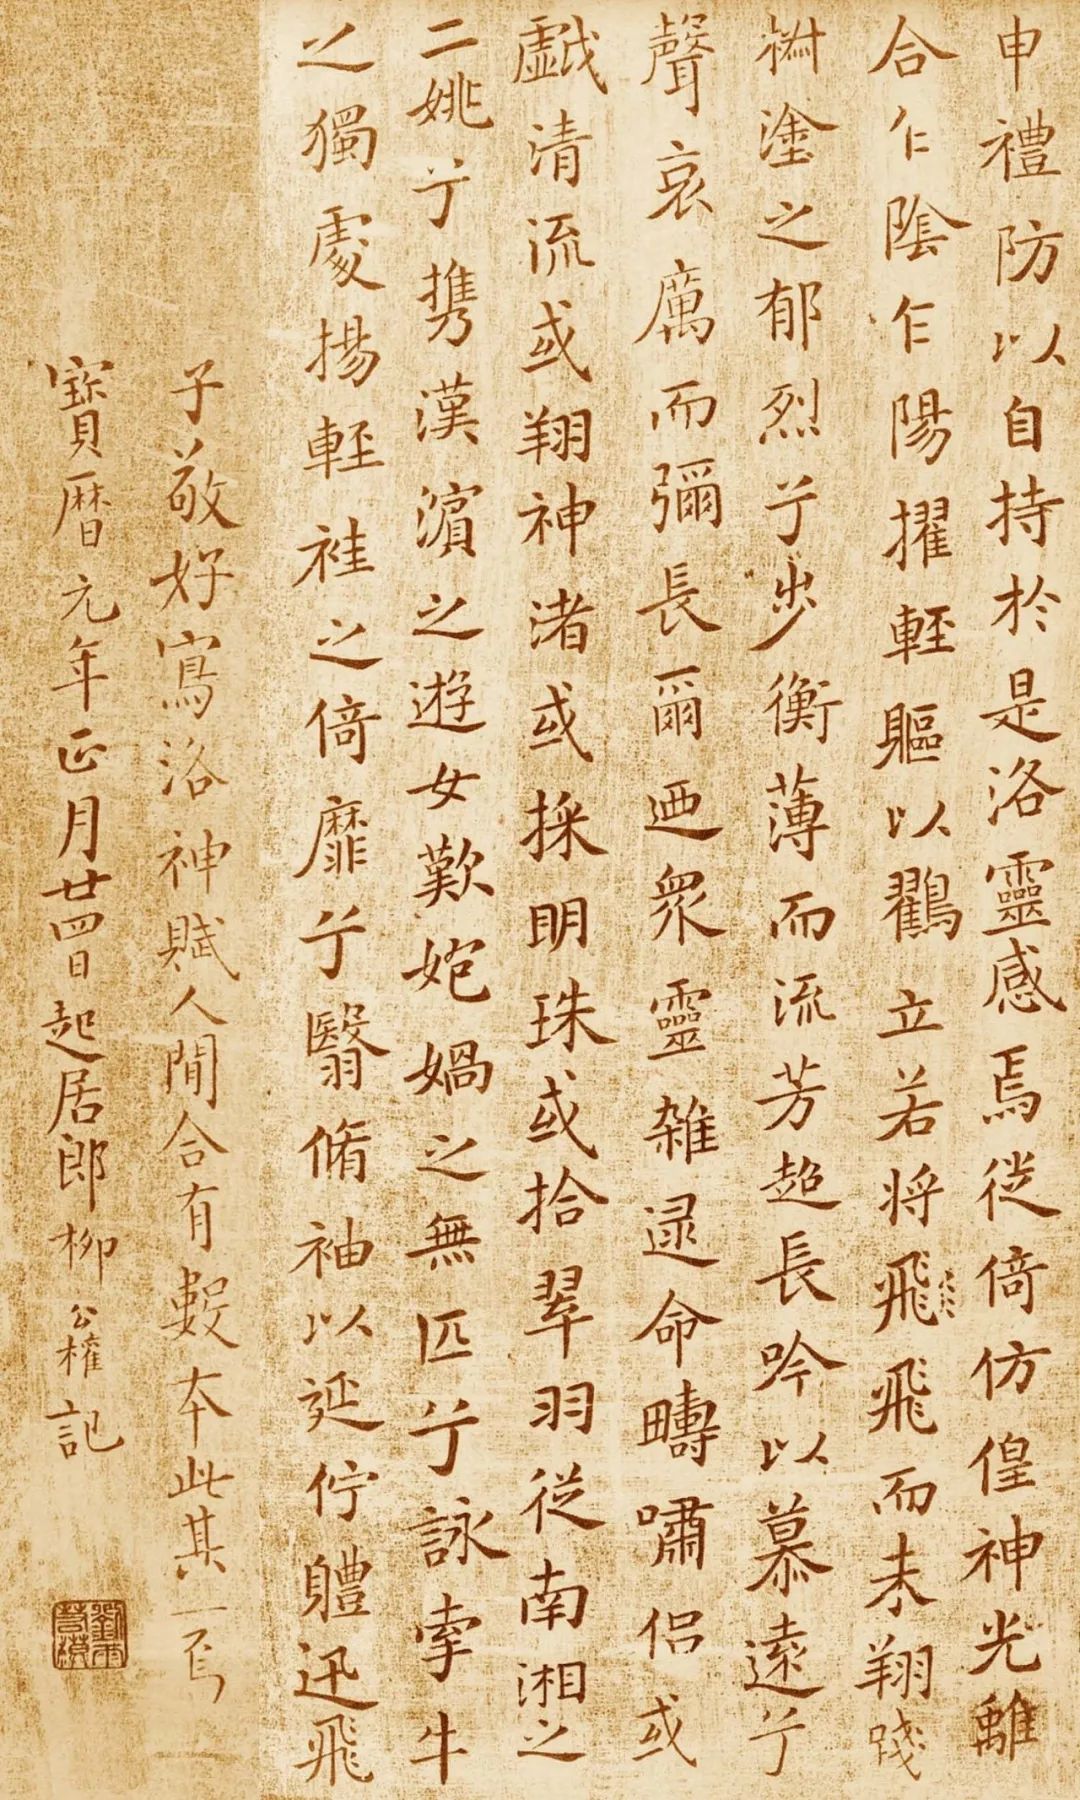 申禮防以自持於是洛靈感焉徙倚仿偟神光離
合乍陰乍陽擢輕軀以鸖立若將飛飛而未翔踐
椒塗之郁烈兮步衡薄而流芳超長吟以慕遠兮
聲哀厲而彌長爾迺衆靈雜遝命疇嘯侣或
戯清流或翔神渚或採明珠或拾翠羽從南湘之
二姚兮携漢濱之遊女歎匏媧之無匹兮詠牽牛
之獨處揚輕袿之倚靡兮翳脩袖以延佇軆迅飛
子敬好寫洛神賦人間合有數本此其一焉
寶曆元年正月廿四日起居郎柳公權記